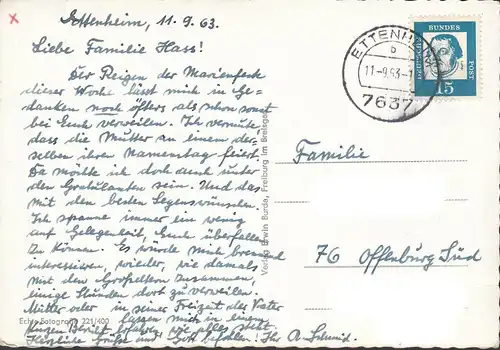 Ettenheim, 11.9.63.
Liebe Familie Hass!
Der Reigen der Marienfeste
dieser Woche lässt mich in Ge-
danken noch öfters als schon sonst
bei Euch verweilen. Ich vermute
dass die Mutter an einem der-
selben ihren Namenstag feiert.
Da möchte ich doch auch unter
den Gratulanten sein. Und das
mit den besten Segenswünschen.
Ich spanne immer ein wenig
auf Gelegenheit, Euch überfallen
zu können. Es würde mich brennend
interessieren, wieder, wie damals
mit den Großeltern zusammen,
einige Stunden dort zu verweilen.
Mutter oder in seiner Freizeit der Vater
lassen mich in einem
kurzen Bericht erfahren, wie alles steht.
Herzliche Grüße und Gott befohlen! Ihr A. Schmid.
Echte Fotografie 221/400
Verlag Erwin Burda, Freiburg im Breisgau
ETTENHEIM
b
11-9.63-1
7637
DEUTSCHE
BUNDES
POST
15
Familie
76 Offenburg Süd